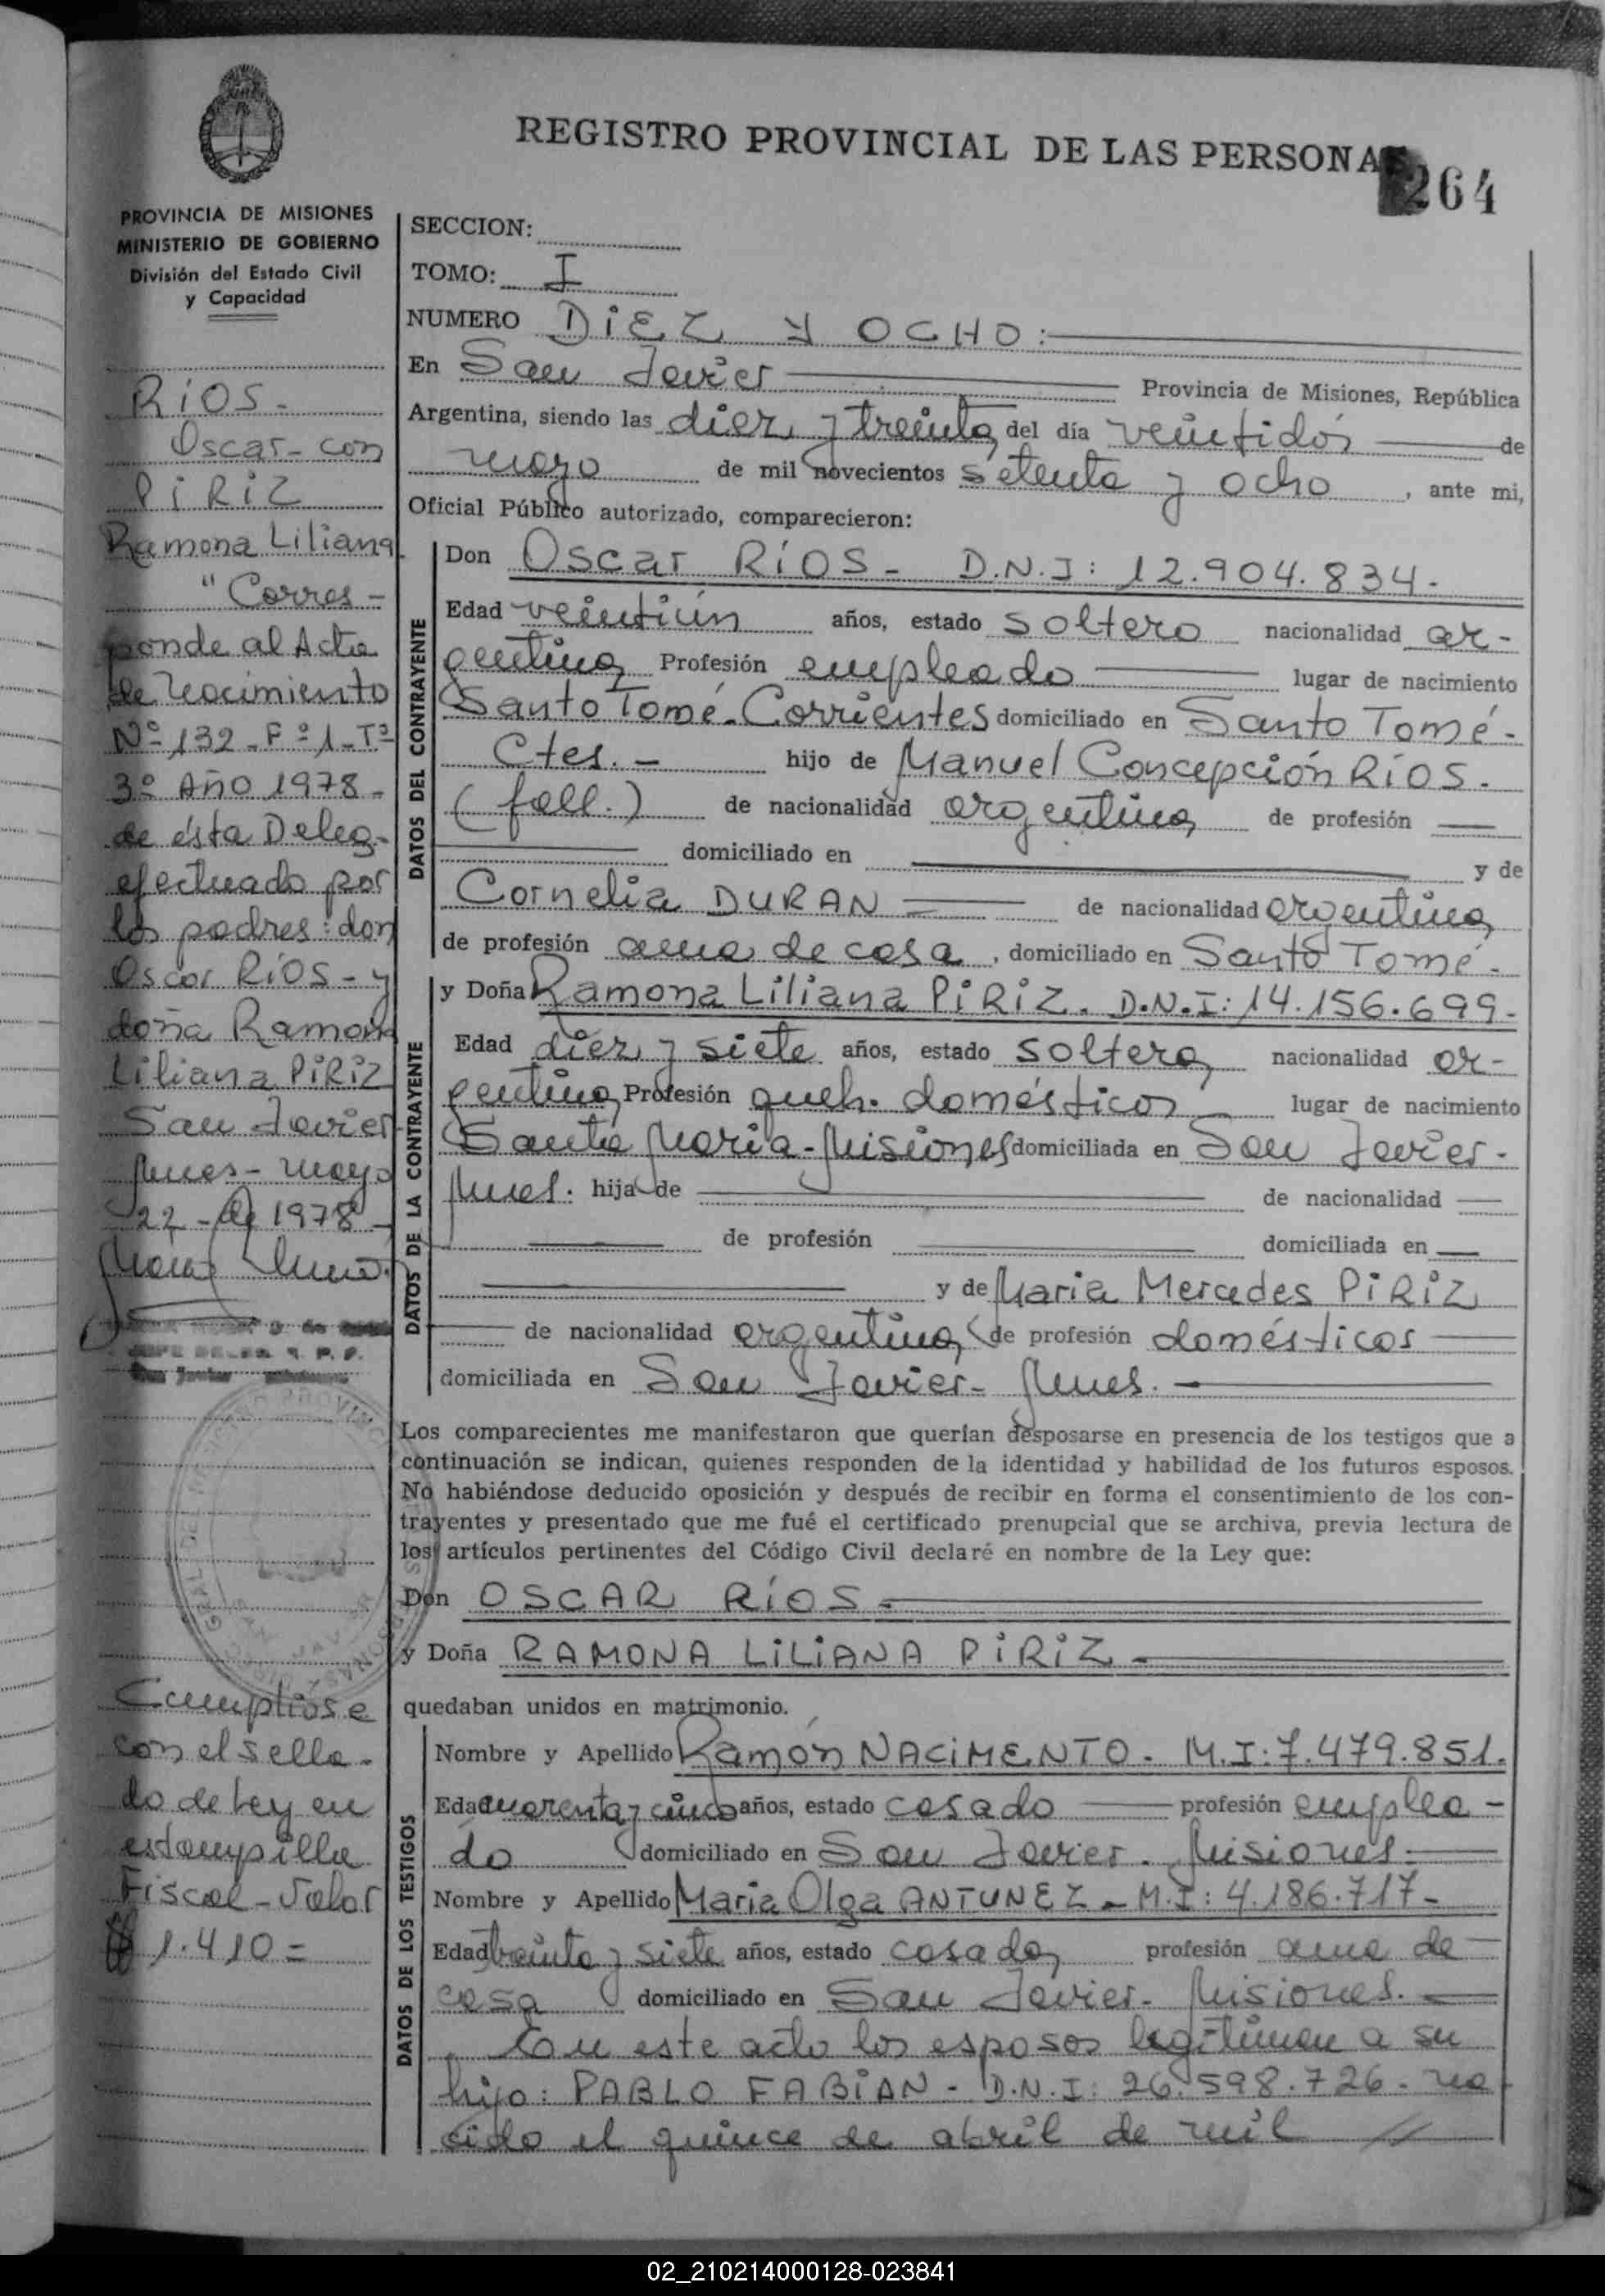 REGISTRO PROVINCIAL DE LAS PERSONAS
264
PROVINCIA DE MISIONES
MINISTERIO DE GOBIERNO
División del Estado Civil
y Capacidad
RíOS-
Oscar- con
PiRiZ
Ramona Liliana.
"Corres-
ponde al Acta
de nacimiento
Nº 132-Fº 1-Tº
3º Año 1978-
de ésta Deleg-
efectuado por
los padres: don
Oscar RíOS- y
doña Ramona
Liliana PiRiZ
San Javier
Mnes- mayo
22- de 1978-
San Javier Misiones
Cumplióse
con el sella-
do de Ley en
estampilla
Fiscal-Valor
$ 1.410=
SECCION:
TOMO: I
NUMERO DiEZ Y OCHO:
En San Javier Provincia de Misiones, República
Argentina, siendo las diez y treinta del día veintidós de
mayo de mil novecientos setenta y ocho, ante mi,
Oficial Público autorizado, comparecieron:
DATOS DEL CONTRAYENTE
Don Oscar RíOS- D.N.I: 12.904.834-
Edad veintiún años, estado soltero nacionalidad ar-
gentina Profesión empleado lugar de nacimiento
Santo Tomé-Corrientes domiciliado en Santo Tomé-
Ctes.- hijo de Manuel Concepción RíOS.
(fall.) de nacionalidad argentina de profesión
domiciliado en y de
Cornelia DURAN de nacionalidad argentina
de profesión ama de casa, domiciliado en Santo Tomé-
DATOS DE LA CONTRAYENTE
y Doña Ramona Liliana PiRiZ. D.N.I: 14.156.699-
Edad diez y siete años, estado soltera nacionalidad ar-
gentina Profesión queh. domésticos lugar de nacimiento
Santa María-Misiones domiciliada en San Javier-
Mnes. hija de de nacionalidad
de profesión domiciliada en
y de Maria Mercedes PiRiZ
de nacionalidad argentina de profesión domésticos
domiciliada en San Javier- Mnes.
Los comparecientes me manifestaron que querían desposarse en presencia de los testigos que a
continuación se indican, quienes responden de la identidad y habilidad de los futuros esposos.
No habiéndose deducido oposición y después de recibir en forma el consentimiento de los con-
trayentes y presentado que me fué el certificado prenupcial que se archiva, previa lectura de
los artículos pertinentes del Código Civil declaré en nombre de la Ley que:
Don OSCAR RíOS-
y Doña RAMONA LiLiANA PiRiZ-
quedaban unidos en matrimonio.
DATOS DE LOS TESTIGOS
Nombre y Apellido Ramón NACiMENTO- M.I: 7.479.851.
Edad cuarenta y cinco años, estado casado profesión emplea-
do domiciliado en San Javier. Misiones.
Nombre y Apellido Maria Olga ANTUNEZ- M.I: 4.186.717-
Edad treinta y siete años, estado casada profesión ama de
casa domiciliado en San Javier- Misiones.
En este acto los esposos legitiman a su
hijo: PABLO FABiAN- D.N.I: 26.598.726- na-
cido el quince de abril de mil //
02_210214000128-023841